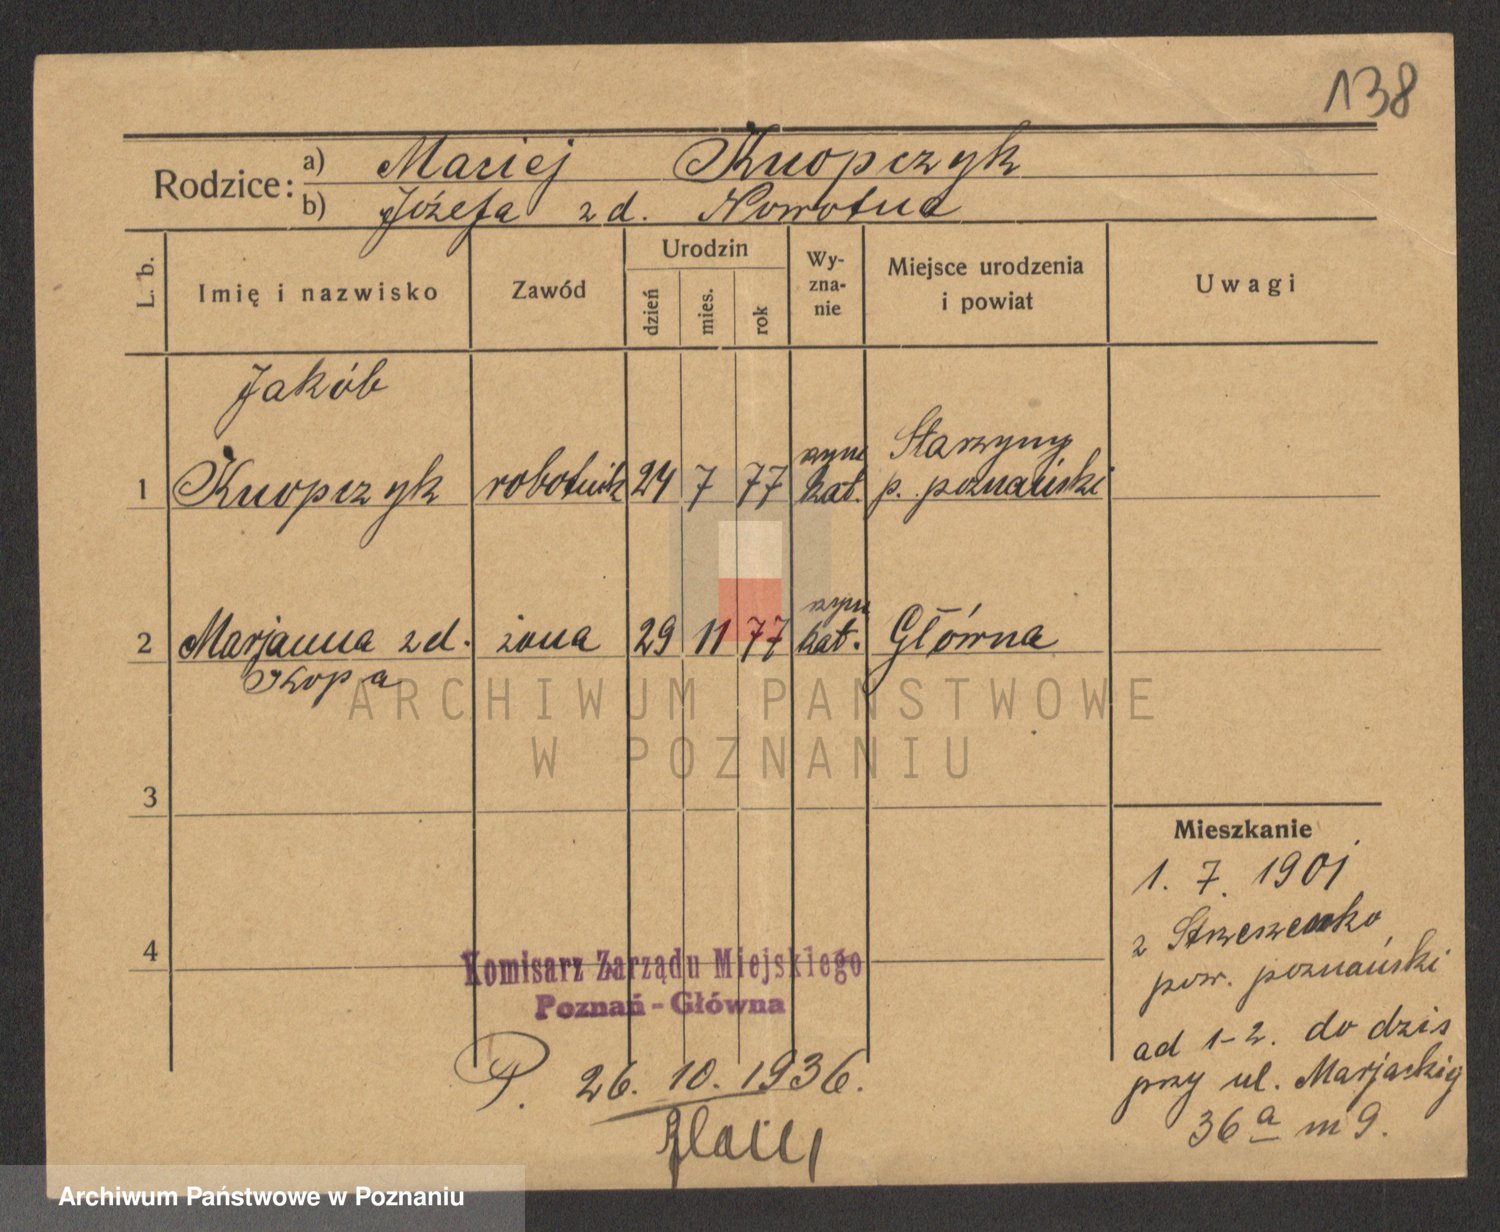 138
Rodzice: a) Maciej Knopczyk
b) Józefa zd. Nowotna
L. b.
Imię i nazwisko
Zawód
Urodzin
dzień
mies.
rok
Wy-
zna-
nie
Miejsce urodzenia
i powiat
Uwagi
Jakób
1 Knopczyk robotnik 24 7 77 rzym kat. Starzyny p. poznański
2 Marjanna zd. żona 29 11 77 rzym kat. Główna
Kopa
ARCHIWUM PAŃSTWOWE
W POZNANIU
3
4
Mieszkanie
1. 7. 1901
z Strzeszenko
pow. poznański
ad 1-2. do dzis
przy ul. Marjackiej
36 a m 9.
Komisarz Zarządu Miejskiego
Poznań-Główna
P. 26. 10. 1936.
Archiwum Państwowe w Poznaniu